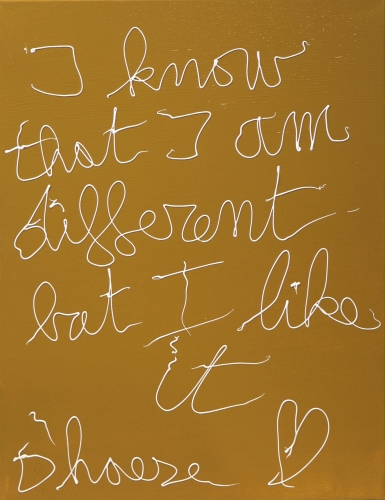 I know
that I am
different
bat I like
it
D'haese